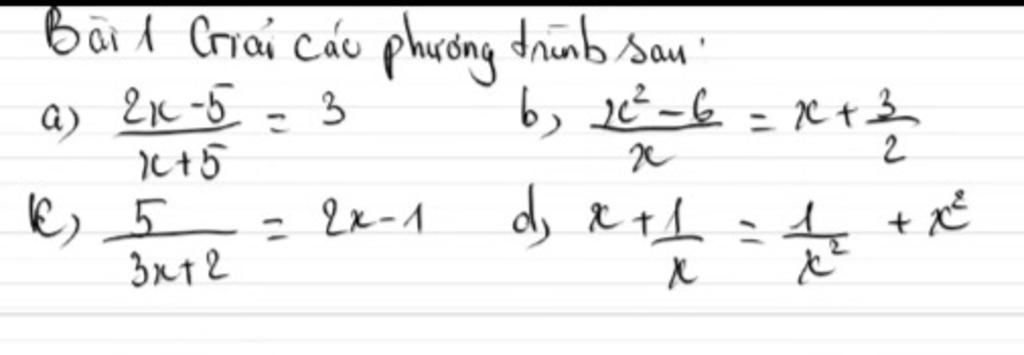 Bài 1 Giải các phương trình sau:
a) (2x-5)/(x+5) = 3 b) (x²-6)/x = x + 3/2
c) 5/(3x+2) = 2x-1 d) x + 1/x = 1/x² + x²